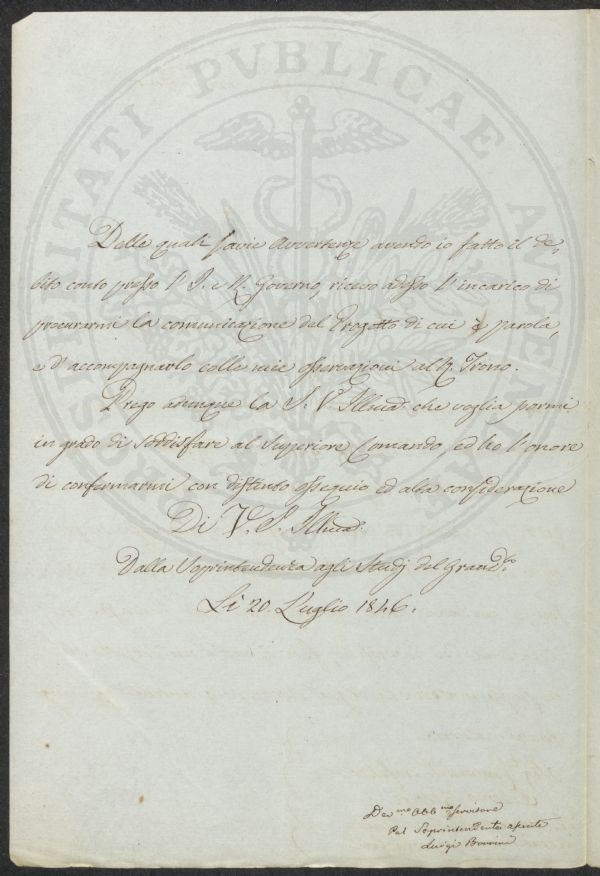 Delle quali savie Avvertenze avendo io fatto il de-
bito conto presso l'I. e R. Governo, ricevo adesso l'incarico di
procurarmi la comunicazione del Progetto di cui è parola,
e d'accompagnarlo colle mie osservazioni al R. Trono.
Prego adunque la S. V. Illma. che voglia pormi
in grado di soddisfare al Superiore Comando, ed ho l'onore
di confermarmi con distinto ossequio ed alta considerazione
Di V. S. Illma.
Dalla Soprintendenza agli Studj del Grand.
Li 20. Luglio 1846.
Dev.mo Obb.mo Servitore
Pel Soprintendente assente
Luigi